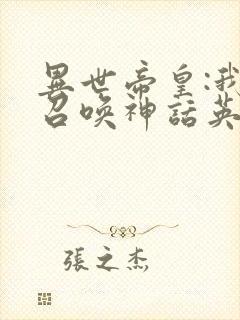 異世帝皇:我
召喚神話英
張之杰